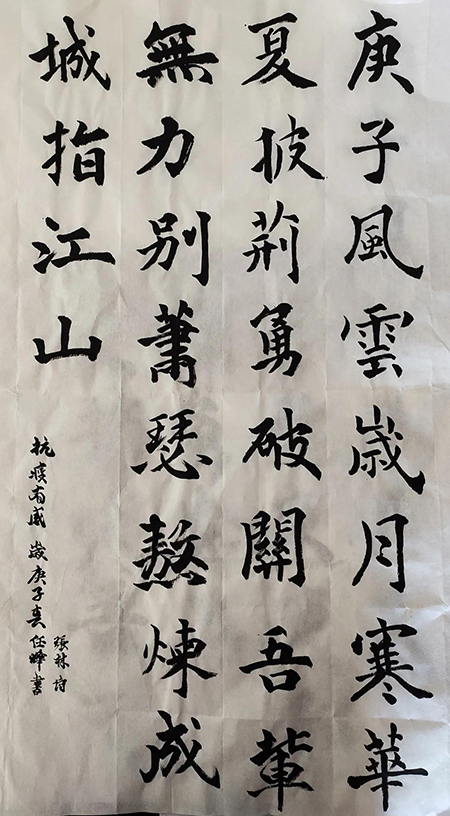 庚子風雲歲月寒華
夏披荊勇破關吾輩
無力別蕭瑟熬煉成
城指江山
抗疫有感 歲庚子夏任峰書
張林詩